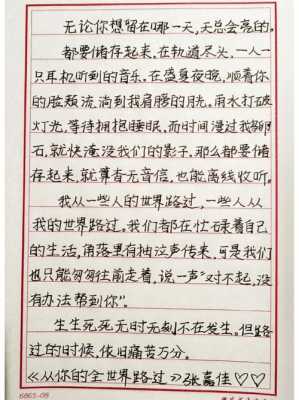 无论你想留在哪一天,天总会亮的。
都要储存起来,在轨道尽头,一人一
只耳机听到的音乐,在盛夏夜晚,顺着你
的脸颊流淌到我肩膀的月光。用水打破
灯光,等待拥抱睡眠,而时间漫过我卵
石,就快淹没我们的影子。那么都要储
存起来,就算杳无音信,也能离线收听。
我从一些人的世界路过,一些人从
我的世界路过。我们都在忙碌着自己
的生活,角落里有抽泣声传来,可是我们
也只能匆匆往前走着,说一声"对不起,没
有办法帮到你"。
生生死死无时无刻不在发生。但路
过的时候,依旧痛苦万分。
《从你的全世界路过》张嘉佳♡♡
6865-08